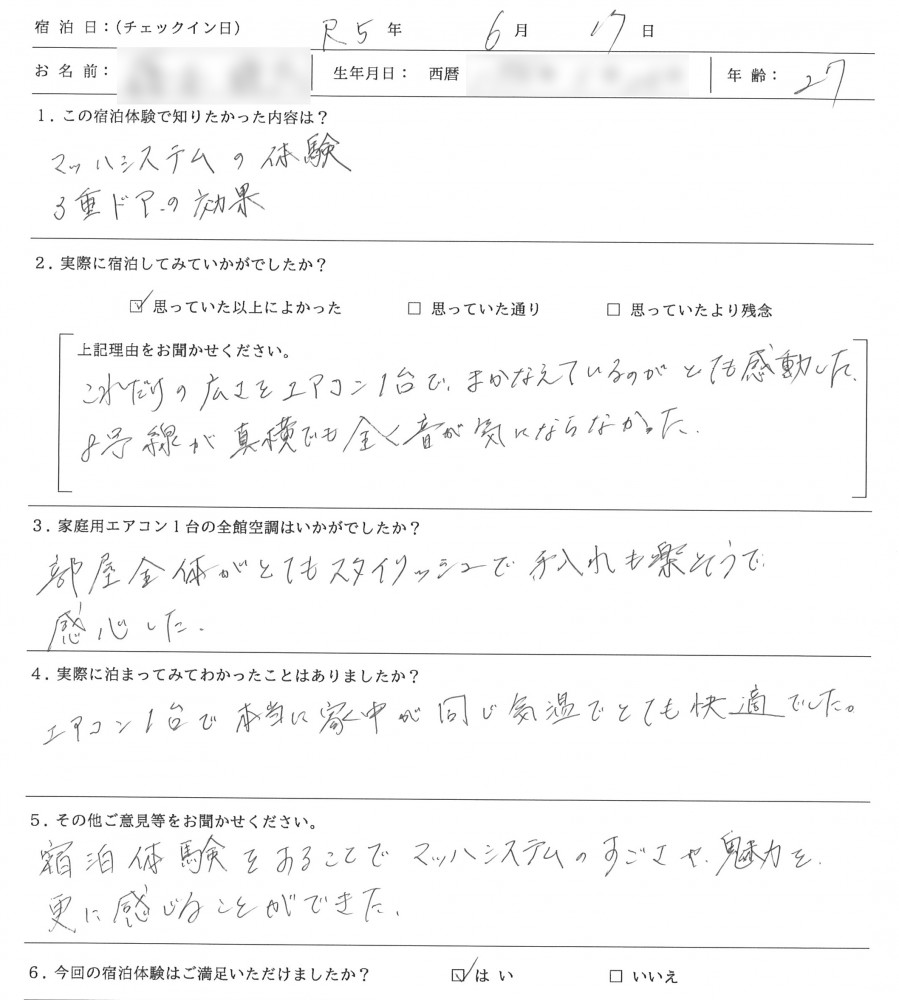 宿 泊 日:(チェックイン日) R5 年 6 月 17 日
お 名 前: 生年月日: 西暦 年 齢: 27
1. この宿泊体験で知りたかった内容は?
マッハシステムの体験
3重ドアの効果
2. 実際に宿泊してみていかがでしたか?
☑ 思っていた以上によかった □ 思っていた通り □ 思っていたより残念
上記理由をお聞かせください。
これだけの広さをエアコン1台で、まかなえているのがとても感動した、
8号線が真横でも全く音が気にならなかった、
3. 家庭用エアコン1台の全館空調はいかがでしたか?
部屋全体がとてもスタイリッシュで手入れも楽そうで
感心した、
4. 実際に泊まってみてわかったことはありましたか?
エアコン1台で本当に家中が同じ気温でとても快適でした。
5. その他ご意見等をお聞かせください。
宿泊体験をあることでマッハシステムのすごさや、魅力を、
更に感じることができた、
6. 今回の宿泊体験はご満足いただけましたか? ☑ はい □ いいえ